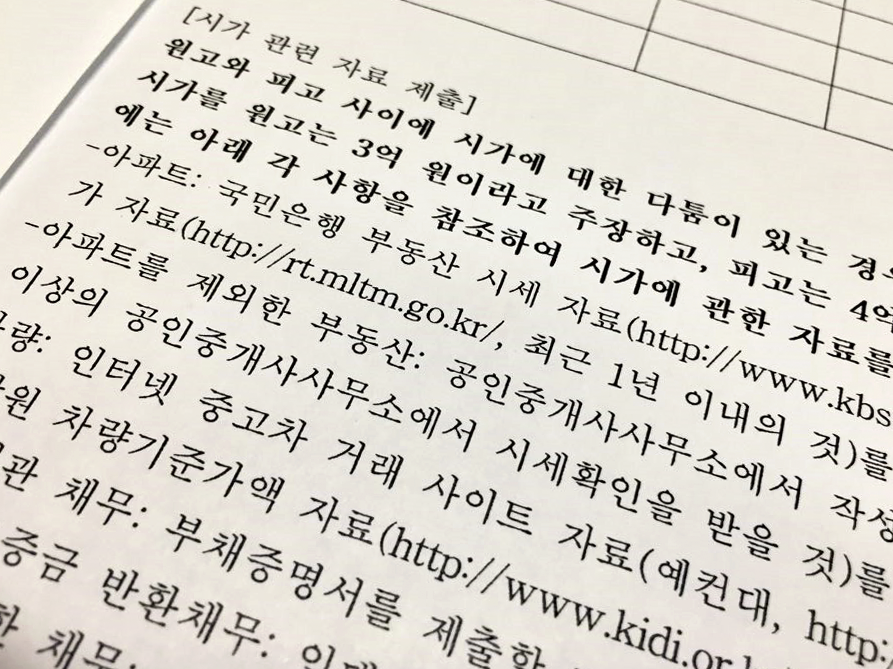 [시가 관련 자료 제출]
원고와 피고 사이에 시가에 대한 다툼이 있는 경우
시가를 원고는 3억 원이라고 주장하고, 피고는 4억
에는 아래 각 사항을 참조하여 시가에 관한 자료를
-아파트: 국민은행 부동산 시세 자료(http://www.kbs
가 자료(http://rt.mltm.go.kr/, 최근 1년 이내의 것)를
-아파트를 제외한 부동산: 공인중개사사무소에서 작성
이상의 공인중개사사무소에서 시세확인을 받을 것)를
차량: 인터넷 중고차 거래 사이트 자료(예컨대, http:
차량기준가액 자료(http://www.kidi.or.
채무: 부채증명서를 제출할
증금 반환채무:
채무: